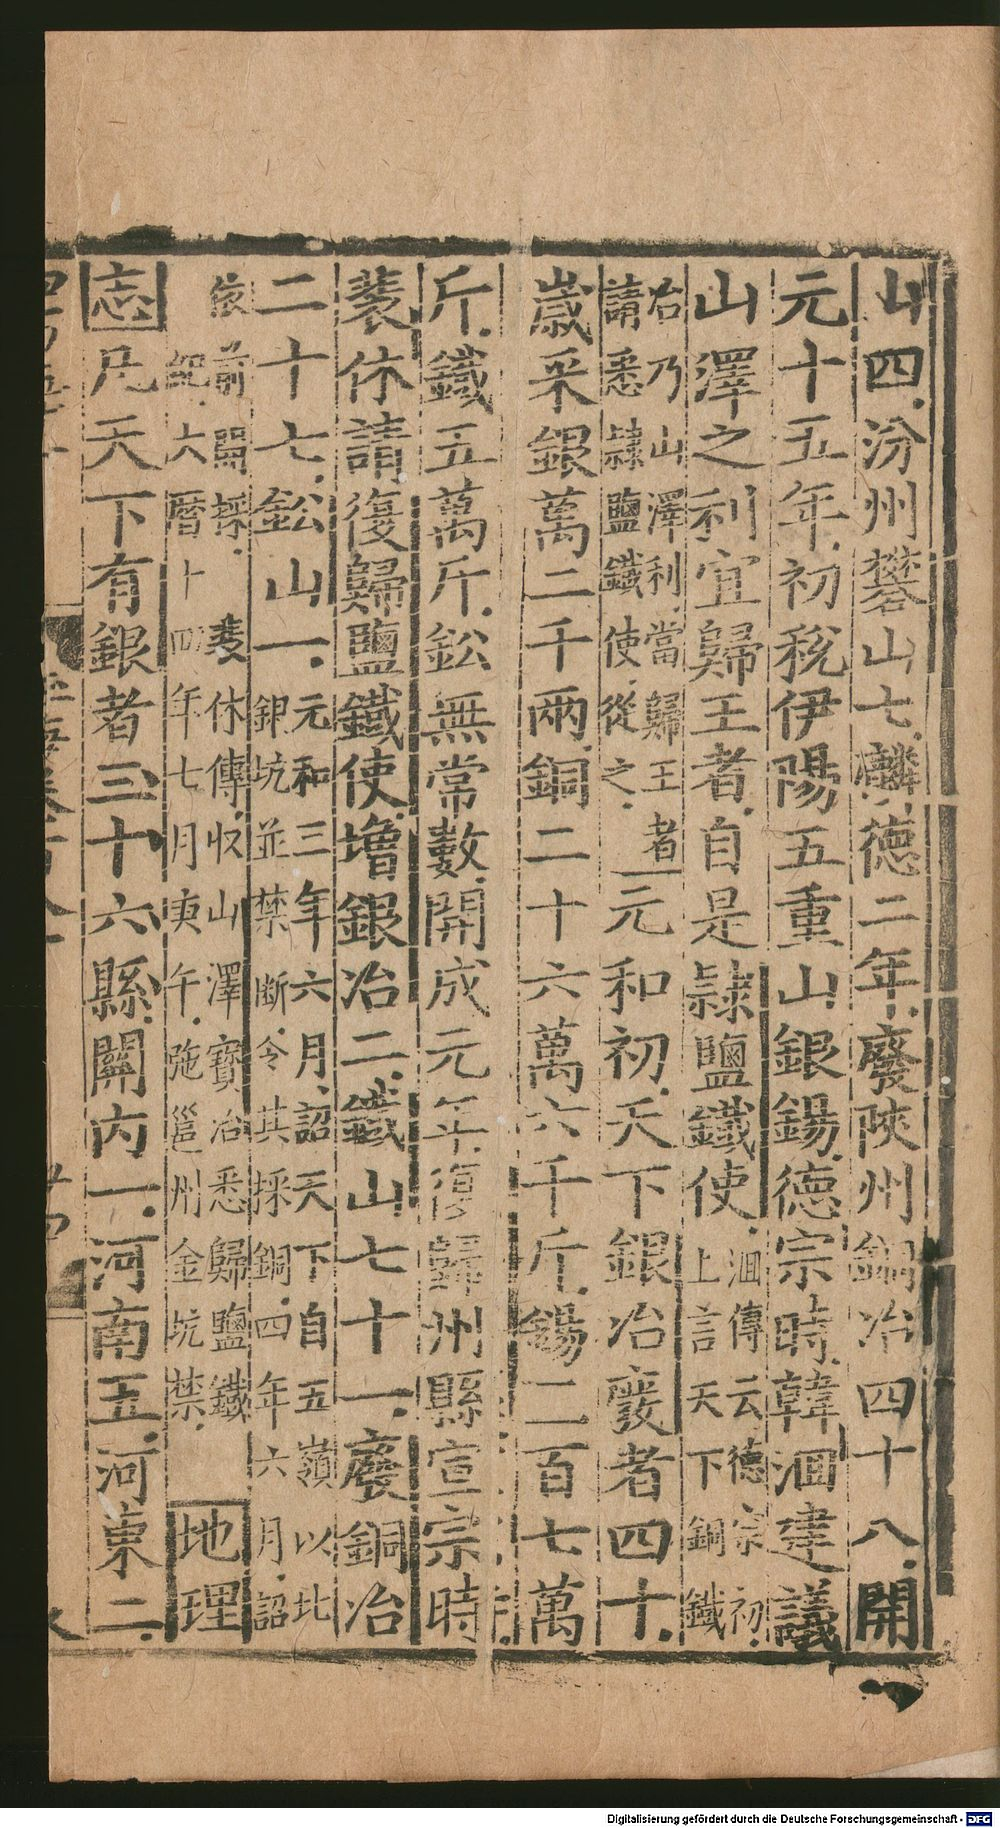 山四汾州礬山七麟德二年廢陝州銅冶四十八開
元十五年初稅伊陽五重山銀錫德宗時韓洄建議
山澤之利宜歸王者自是隷鹽鐵使洄傳云德宗初
上言天下銅鐵
冶乃山澤利當歸王者
請悉隷鹽鐵使從之元和初天下銀冶廢者四十
歲采銀萬二千兩銅二十六萬六千斤錫二百七萬
斤鐵五萬斤鈆無常數開成元年復歸州縣宣宗時
裴休請復歸鹽鐵使增銀冶二鐵山七十一廢銅冶
二十七鈆山一元和三年六月詔天下自五嶺以北
銀坑並禁斷令其採銅四年六月詔
依前㽞採裴休傳収山澤寶冶悉歸鹽鐵
紀六曆十四年七月庚午弛邕州金坑禁地理
志凡天下有銀者三十六縣關内一河南五河東二
Digitalisierung gefördert durch die Deutsche Forschungsgemeinschaft - DFG